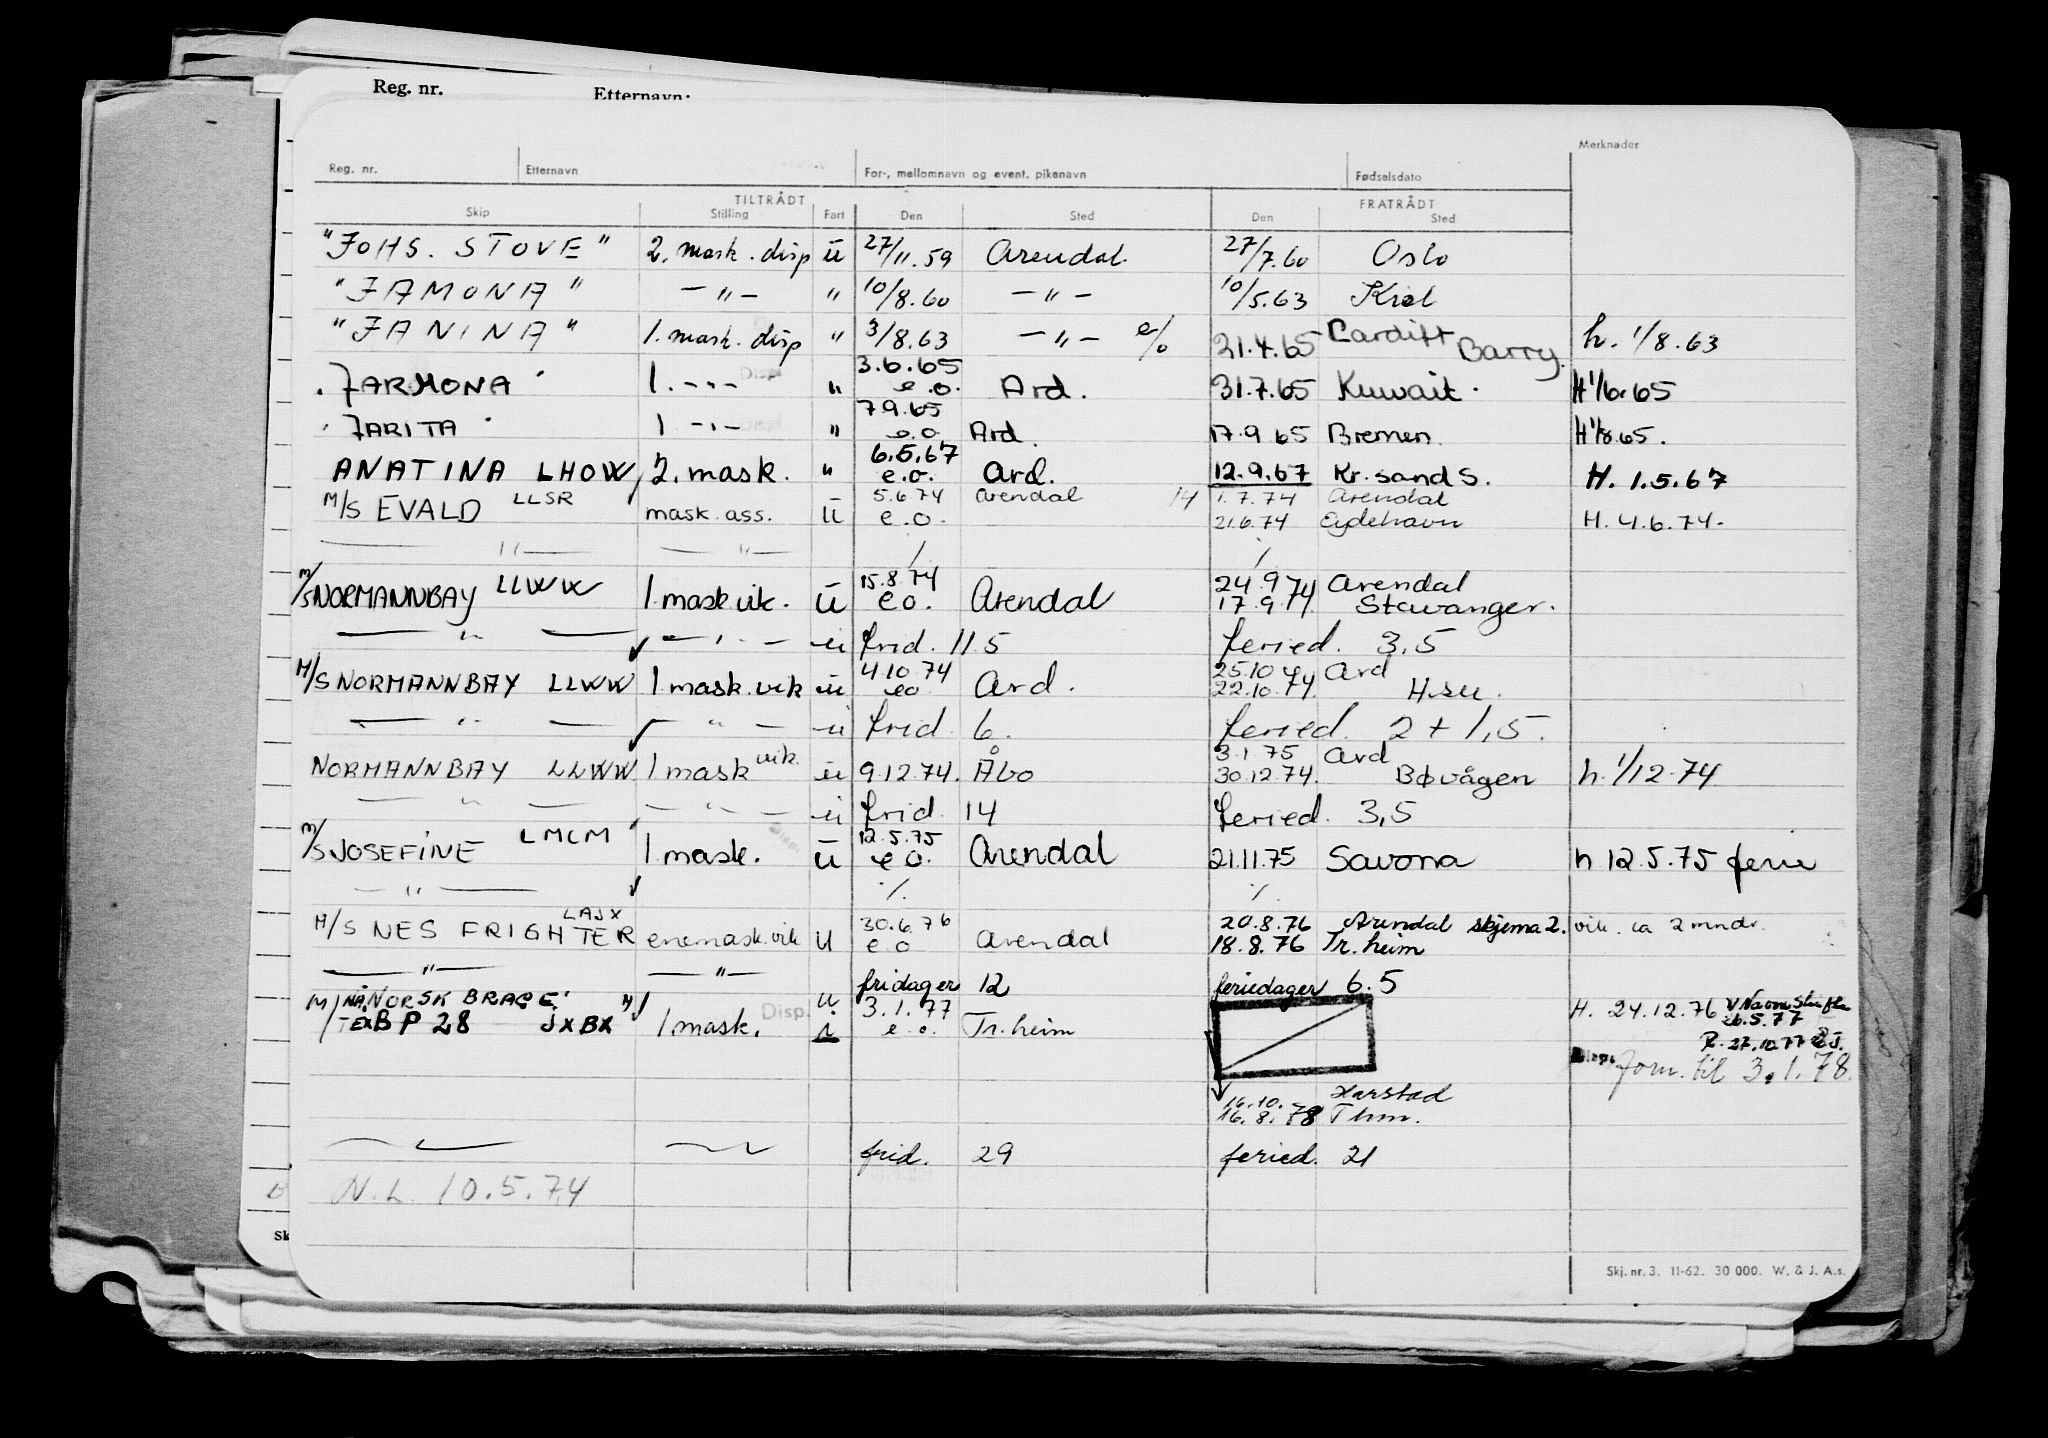 Reg. nr. Etternavn:
Merknader
Reg. nr. Etternavn For-, mellomnavn og event. pikenavn Fødselsdato
TILTRÅDT FRATRÅDT
Skip Stilling Fart Den Sted Den Sted
"JOHS. STOVE" 2. mask. disp ū 27/11.59 Arendal 27/7.60 Oslo
"JAMONA" -"- " 10/8.60 -"- 10/5.63 Kiel
"JANINA" 1. mask. disp " 3/8.63 -"- e/o 21.4.65 Cardiff Barry. h. 1/8.63
3.6.65
"JARMONA" 1. -"- Disp " e.o. Ard. 31.7.65 Kuwait. H 1/6.65
7.9.65
"JARITA" 1 -"- Disp " e.o. Ard. 17.9.65 Bremen. H 1/8.65.
6.5.67
ANATINA LHOW, 2. mask. " e.o. Ard. 12.9.67 Kr.sand S. H. 1.5.67
5.6.74 Arendal 14 1.7.74 Arendal
M/S EVALD LLSR mask. ass. ū e.o. 21.6.74 Eydehavn H. 4.6.74.
— " — — " — ./. ./.
15.8.74 24.9.74 Arendal
M/S NORMANNBAY LLWW 1. mask vik. ū e.o. Arendal 17.9.74 Stavanger.
— " — — " — ū frid. 11.5 feried. 3,5
4.10.74 25.10.74 Ard
M/S NORMANNBAY LLWW 1 mask. vik ū eo Ard. 22.10.74. H.su.
— " — — " — ū frid. 6. feried. 2 + 1,5.
3.1.75 Ard
NORMANNBAY LLWW 1 mask vik. ū 9.12.74. Åbo 30.12.74. Bøvågen h. 1/12.74
— " — — " — ū frid. 14 feried. 3,5
12.5.75
M/S JOSEFINE LMCM 1. mask. ū e.o. Arendal 21.11.75 Savona h. 12.5.75 ferie
— " — ./. ./.
LAJX 30.6.76 20.8.76 Arendal skjema 2. vik. ca 2 mndr.
M/S NES FRIGHTER enemask. vik U e.o Arendal 18.8.76 Tr.heim
— " — — " — fridager 12 feriedager 6.5
M/ NÅ NORSK BRAGE" u 3.1.77 H. 24.12.76 V. Navn
TEXBP 28 JXBX 1 mask. Disp. e.o. Tr.heim 26.5.77
R. 27.10.77
Disp. Forn. til 3.1.78.
16.10. Harstad
16.8.78 Thm.
frid. 29 feried. 21
N.L. 10.5.74
Sk
Skj. nr. 3. 11-62. 30 000. W. & J. A.s.